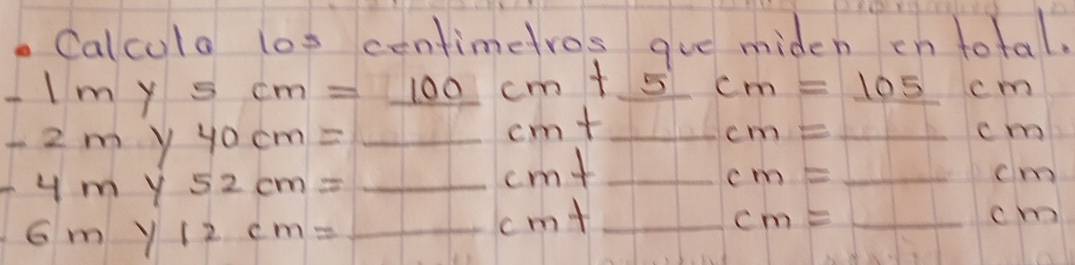 • Calcula los centimetros que miden en total.
- 1 m y 5 cm = 100 cm + 5 cm = 105 cm
- 2 m y 40 cm = ____ cm + ____ cm = ____ cm
- 4 m y 52 cm = ____ cm + ____ cm = ____ cm
6 m y 12 cm = ____ cm + ____ cm = ____ cm